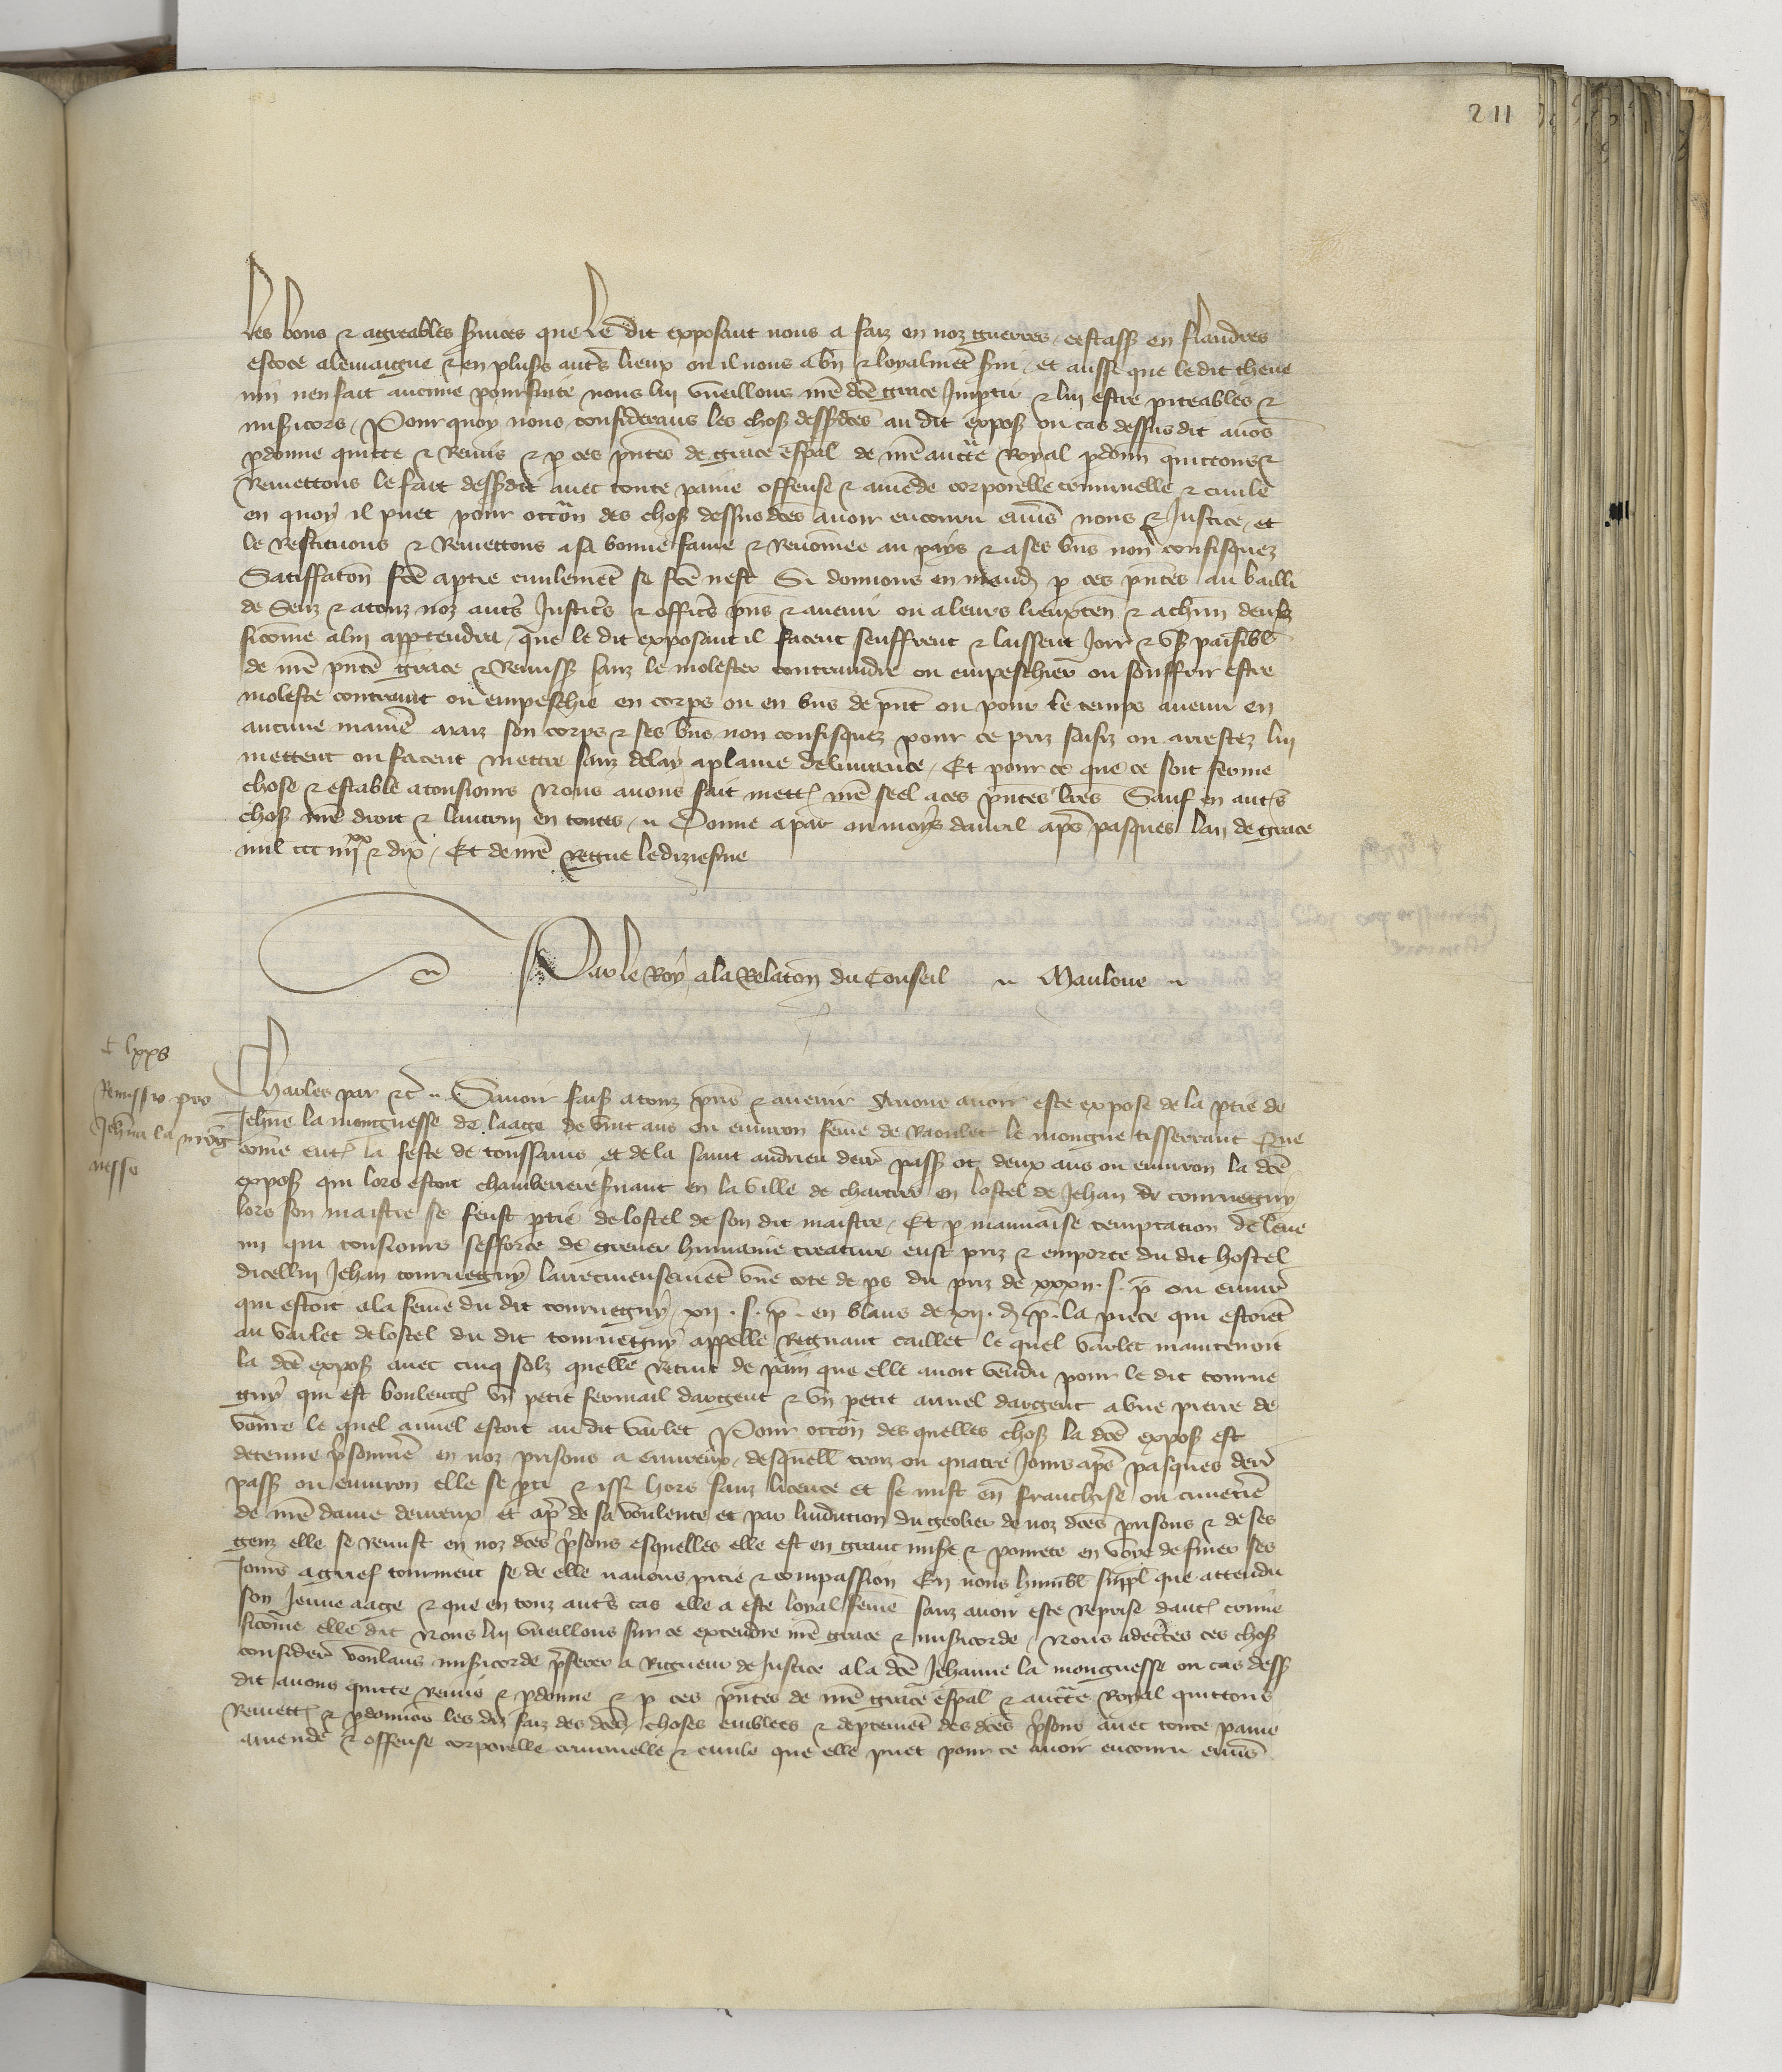 211
les bons & agreables svices que le dit exposant nous a faiz en noz guerres / cestass en flandres
escoce alemaigne & en plusrs autrs lieux ou il nous a bn & loyalmet svi / et aussi que le dit cheue
nui nen fait aucune poursuite nous lui vueillons nre dce grace Impartir & lui estre piteables &
misicors / Pourquoy nous considerans les choss dessusdces au dit expost ou cas dessus dit auons
pdonne quitte & Remis & p ces pntes de grace espal de nre aucte Royal pdonn quittons &
Remettons le fait dessusdit auec toute paine offense & amende corporelle criminelle & ciuile
en quoy il puet pour occon des choss dessusdces auoir encouru enuers nous & Justice / et
le Restituons & Remettons a sa bonne fame & Renomee au pays & a ses bns non confisquez
Satiffacon fce a ptie ciuilemet se fce nest Si donnons en mand p ces pntes au bailli
de Senz & a touz noz autrs Justicrs & officrs pns & auenir ou a leurs lieuxten & a chun deulx
sicome a lui apptendra / que le dit exposant il facent seuffrent & laissent Joir & vs paisibl
de nre pnte grace & Remiss sanz le molester contraindre ou empeschier ou souffrir estre
moleste contraint ou empeschie en corps ou en bns de pnt ou pour le temps auenir en
aucune maniere maiz son corps & ses bns non confisquez pour ce priz saisiz ou arrestez lui
mettent ou facent mettre sanz delay a plaine deliurance / Et pour ce que ce soit ferme
chose & estable a tousiours Nous auons fait mettr nre seel a ces pntes lres Sauf en autrs
choss nre droit & lautrui en toutes / Donne a par ou moys dauril aprs pasques lan de grace
mil ccc iiij xx & dix / Et de nre Regne le diziesme
Par le Roy a la Relacon du Conseil Mauloue
C lxxv
Remissio pro
Jehna la mog
nesse
Charles par &c Sauoir fais a touz pns & auenir A nous auoir este expose de la ptie de
Jehne la mongnesse de laage de vint ans ou enuiron feme de Raoulet le mongne tisserrant Que
come entr la feste de toussains et de la saint andrieu derr pass ot deux ans ou enuiron la dce
expost qui lors estoit chamberiere suant en la ville de chartres en lostel de Jehan de tourneguy
lors son maistre se feust ptie de lostel de son dit maistre / Et p mauuaise temptation de lene
mi qui tousiours sefforce de greuer humaine creature eust priz & emporte du dit hostel
dicellui Jehan tourneguy larrecineusemet vne cote de ps du priz de xxxii s p ou enuir
qui estoit a la feme du dit tourneguy / xii s p en blans de xii d p la piece qui estoiet
au varlet de lostel du dit tourneguy appelle Regnaut caillet le quel varlet maintenoit
la dce expost auec cinq solz quelle retint de pain que elle auoit vendu pour le dit tourne
guy qui est boulengr vn petit fermail dargent & vn petit annel dargent a vne pierre de
voirre le quel annel estoit au dit varlet Pour occon des quelles choss la dce expost est
detenue prsonniere en noz prisons a eureux / desquell troiz ou quatre Jours aprs pasques derr
pass ou enuiron elle se pti & issi hors sanz licence et se mist en franchise ou cimetiere
de nre dame deureux et apr de sa voulente et par linduction du geolier de noz dces prisons & de ses
genz elle se remist en noz dces prsons esquelles elle est en grant misr & pourete en voye de finer ses
Jours a grief tourment se de elle nauons pitie & compassion En nous humbl suppl que attendu
son Jeune aage & que en touz autrs cas elle a este loyal feme sanz auoir este Reprise dautr crime
sicome elle dit Nous lui vueillons sur ce extendre nre grace & misicorde / Nous adcertes ces choss
considere voulans misicorde prferer a Rigueur de Justice a la dce Jehanne la mongnesse ou cas dess
dit auons quitte Remis & pdonne & p ces pntes de nre grace espal & aucte Royal quittons
Remettr & pdonnons les diz faiz des dces choses emblees & deptemet des dces prsons auec toute paine
amende & offense corporelle criminelle & ciuile que elle puet pour ce auoir encouru enuers